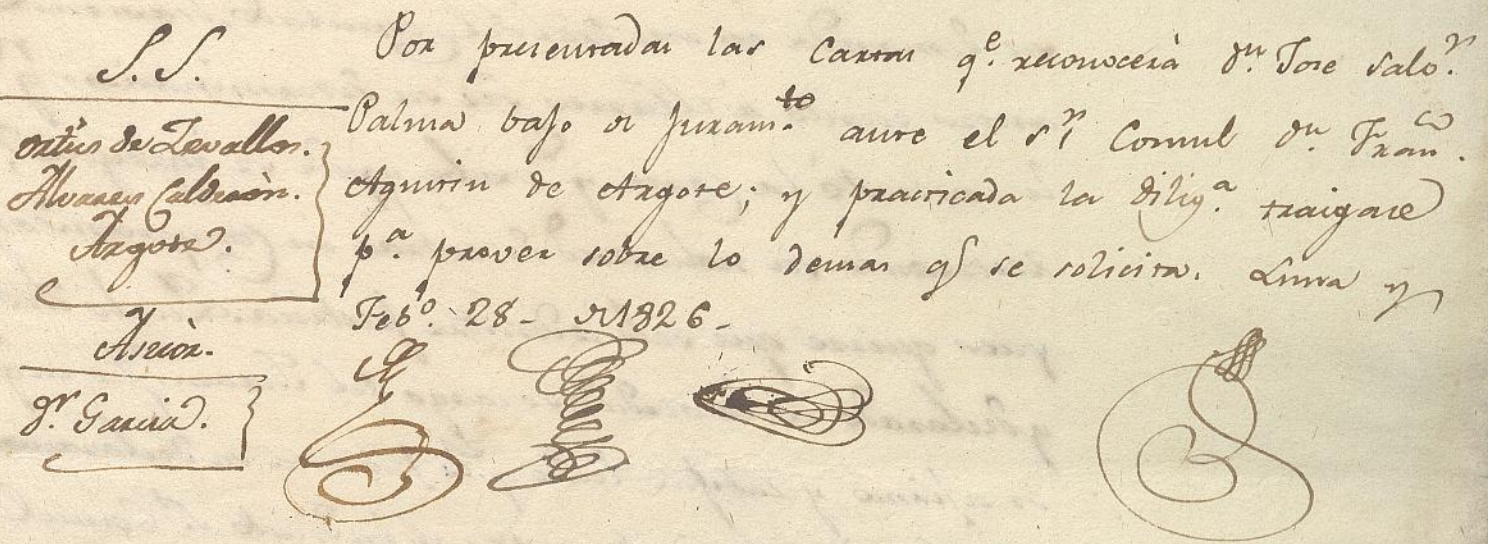 S.S.
Ortis de Zevallos.
Alvares Calderòn.
Argote.
Asesòr.
Dr. Garcia.
Por presentadas las Cartas qe. reconocerà dn. Jose Salor.
Palma bajo de Juramto. ante el Sr. Consul dn. Franco.
Aguirin de Argote; y practicada la dilig.a traigase
p.a prover sobre lo demas q se solicita. Lima y
Febo. 28 - de 1826 -